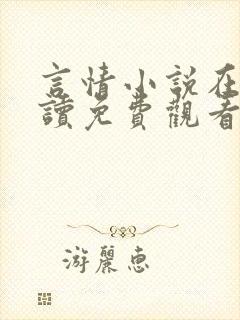 言情小说在
讀免費觀看
游麗惠